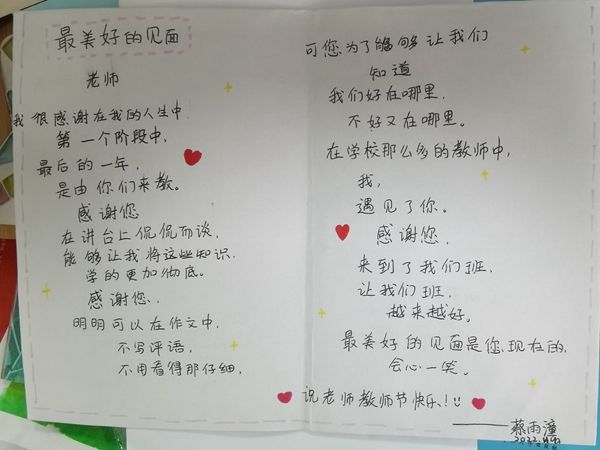 最美好的见面
老师
我很感谢在我的人生中
第一个阶段中,
最后的一年,
是由你们来教。
感谢您
在讲台上侃侃而谈,
能够让我将这些知识,
学的更加彻底。
感谢您,
明明可以在作文中,
不写评语,
不用看得那仔细,
可您为了能够让我们
知道
我们好在哪里,
不好又在哪里。
在学校那么多的教师中,
我,
遇见了你。
感谢您,
来到了我们班,
让我们班,
越来越好。
最美好的见面是您,现在的,
会心一笑。
祝老师教师节快乐!
——蔡雨潼